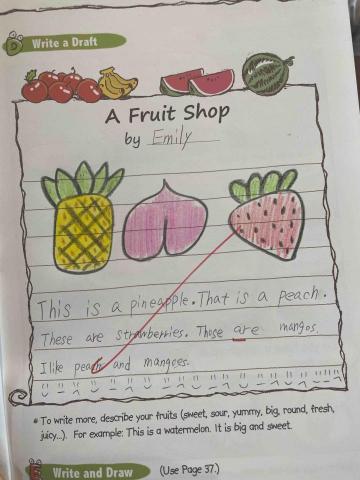 D Write a Draft
A Fruit Shop
by Emily
This is a pineapple. That is a peach.
These are strawberries. Those are mangos.
I like peach and mangoes.
* To write more, describe your fruits (sweet, sour, yummy, big, round, fresh,
juicy...). For example: This is a watermelon. It is big and sweet.
Write and Draw (Use Page 37.)